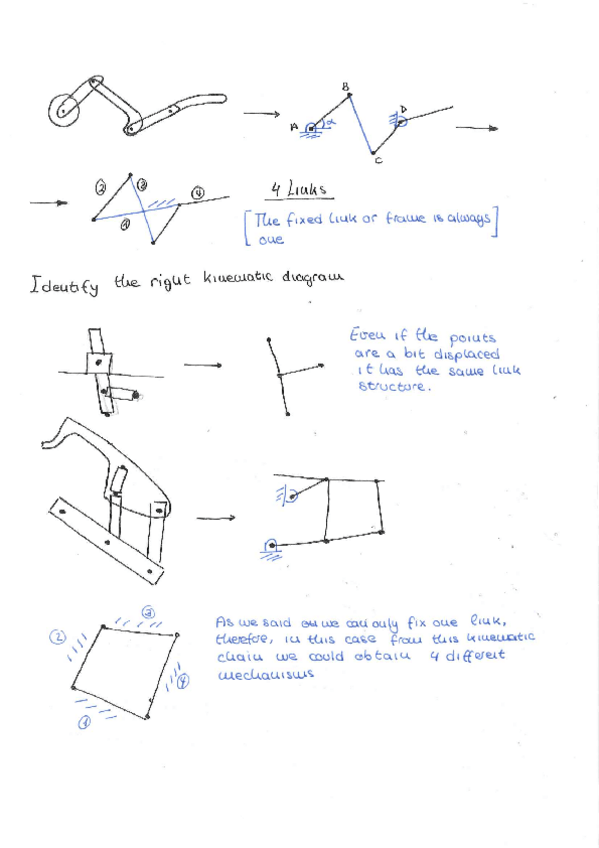 B
A
α
D
C
② ③ ④
①
4 Links
[The fixed link or frame is always]
one
Identify the right kinematic diagram
Even if the points
are a bit displaced
it has the same link
structure.
③
②
④
①
As we said on we can only fix one link,
therefore, in this case from this kinematic
chain we could obtain 4 different
mechanisms